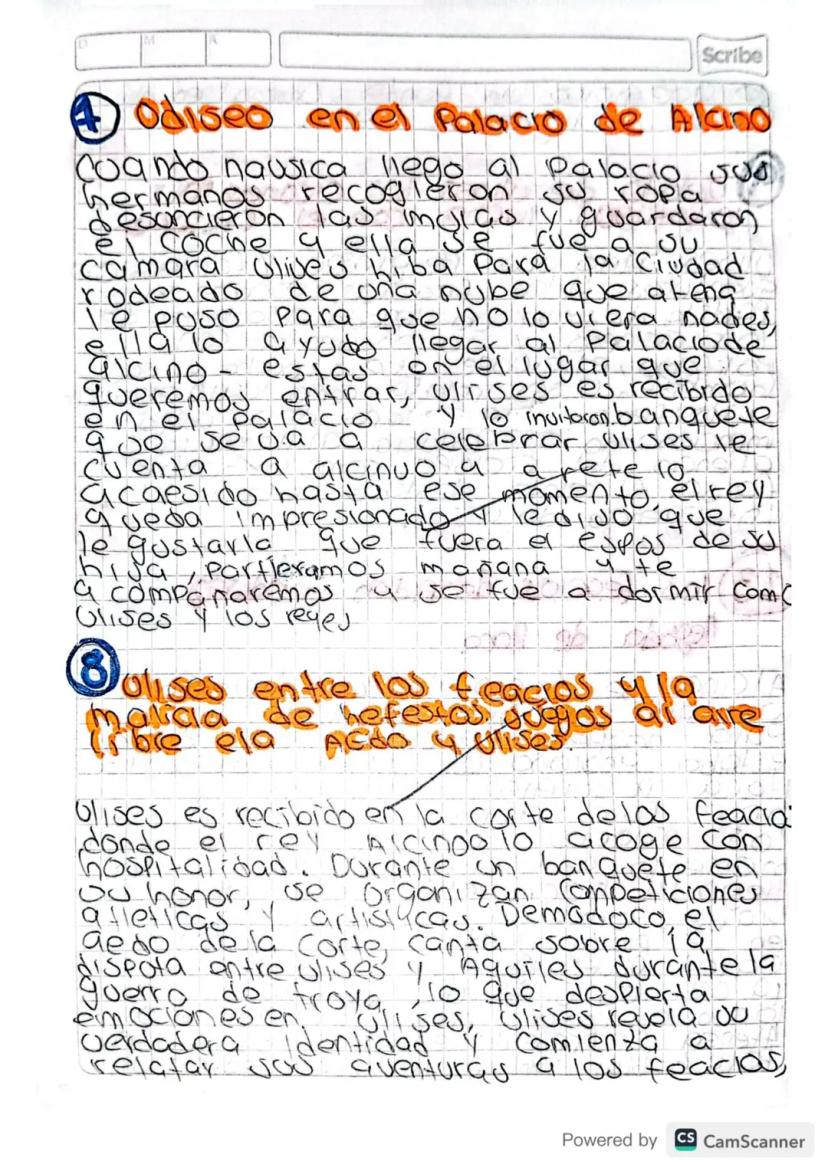 D M A Scribe
7 Odiseo en el Palacio de Alcino
Cuando nausica llego al Palacio sus
hermanos recogieron su ropa
desuncieron las mulas y guardaron
el coche y ella se fue a su
camara Ulises hiba Para la Ciudad
rodeado de una nube que atena
le puso Para que no lo viera nades,
ella lo ayudo llegar al Palacio de
alcino - estas en el lugar que
queremos entrar, Ulises es recibido
en el palacio y lo invitaron banquete
que se va a celebrar Ulises le
cuenta a alcinuo y arete lo
acaesido hasta ese momento, el rey
queda impresionado y le dijo que
le gustarla que fuera el espos de su
hija, Partieramos mañana y te
acompañaremos y se fue a dormir com
Ulises y los reyes
8 Ulises entre los feacios y la
malicia de hefestos. Juegos al aire
libre ela ACdo y Ulises.
Ulises es recibido en la corte de los feacio
donde el rey Alcinoo lo acoge con
hospitalidad. Durante un banquete en
su honor, se organizan Competiciones
atleticas y artisticas. Demodoco, el
aedo de la corte, canta sobre la
disputa entre Ulises y Aquiles durante la
guerra de troya, lo que despierta
emociones en Ulises, Ulises revela su
verdadera identidad y comienza a
relatar sus aventuras a los feacios,
Powered by CS CamScanner